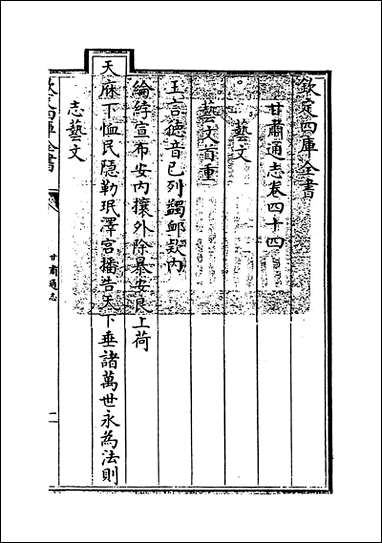 欽定四庫全書
甘肅通志卷四十四
藝文
藝文首重
王言德音已列蠲卹款內
綸綍宣布安内攘外除暴安良上荷
天庥下恤民隱勒珉澤宮播告天下垂諸萬世永為法則
志藝文
欽定四庫全書
甘肅通志